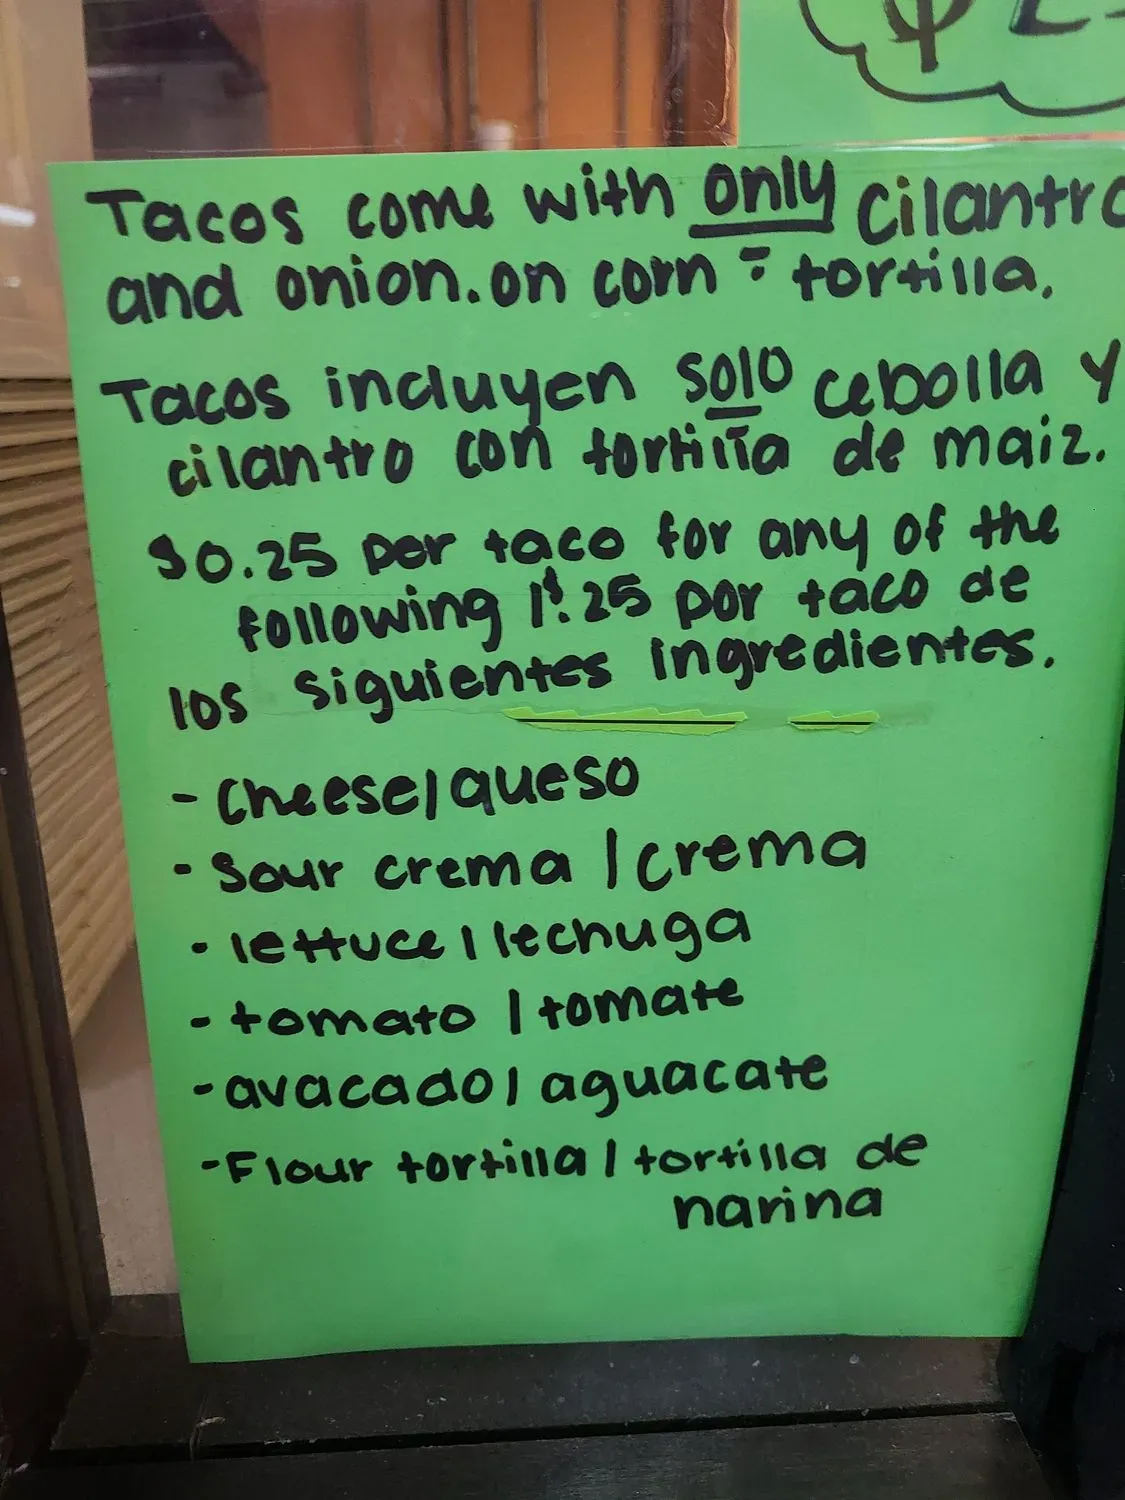 Tacos come with only cilantro
and onion.on corn - tortilla.
Tacos incluyen solo cebolla y
cilantro con tortilla de maiz.
$0.25 per taco for any of the
following /$.25 por taco de
los siguientes ingredientes.
- Cheese/queso
- Sour crema/crema
- lettuce/lechuga
- tomato/tomate
- avacado/aguacate
- Flour tortilla/tortilla de
harina